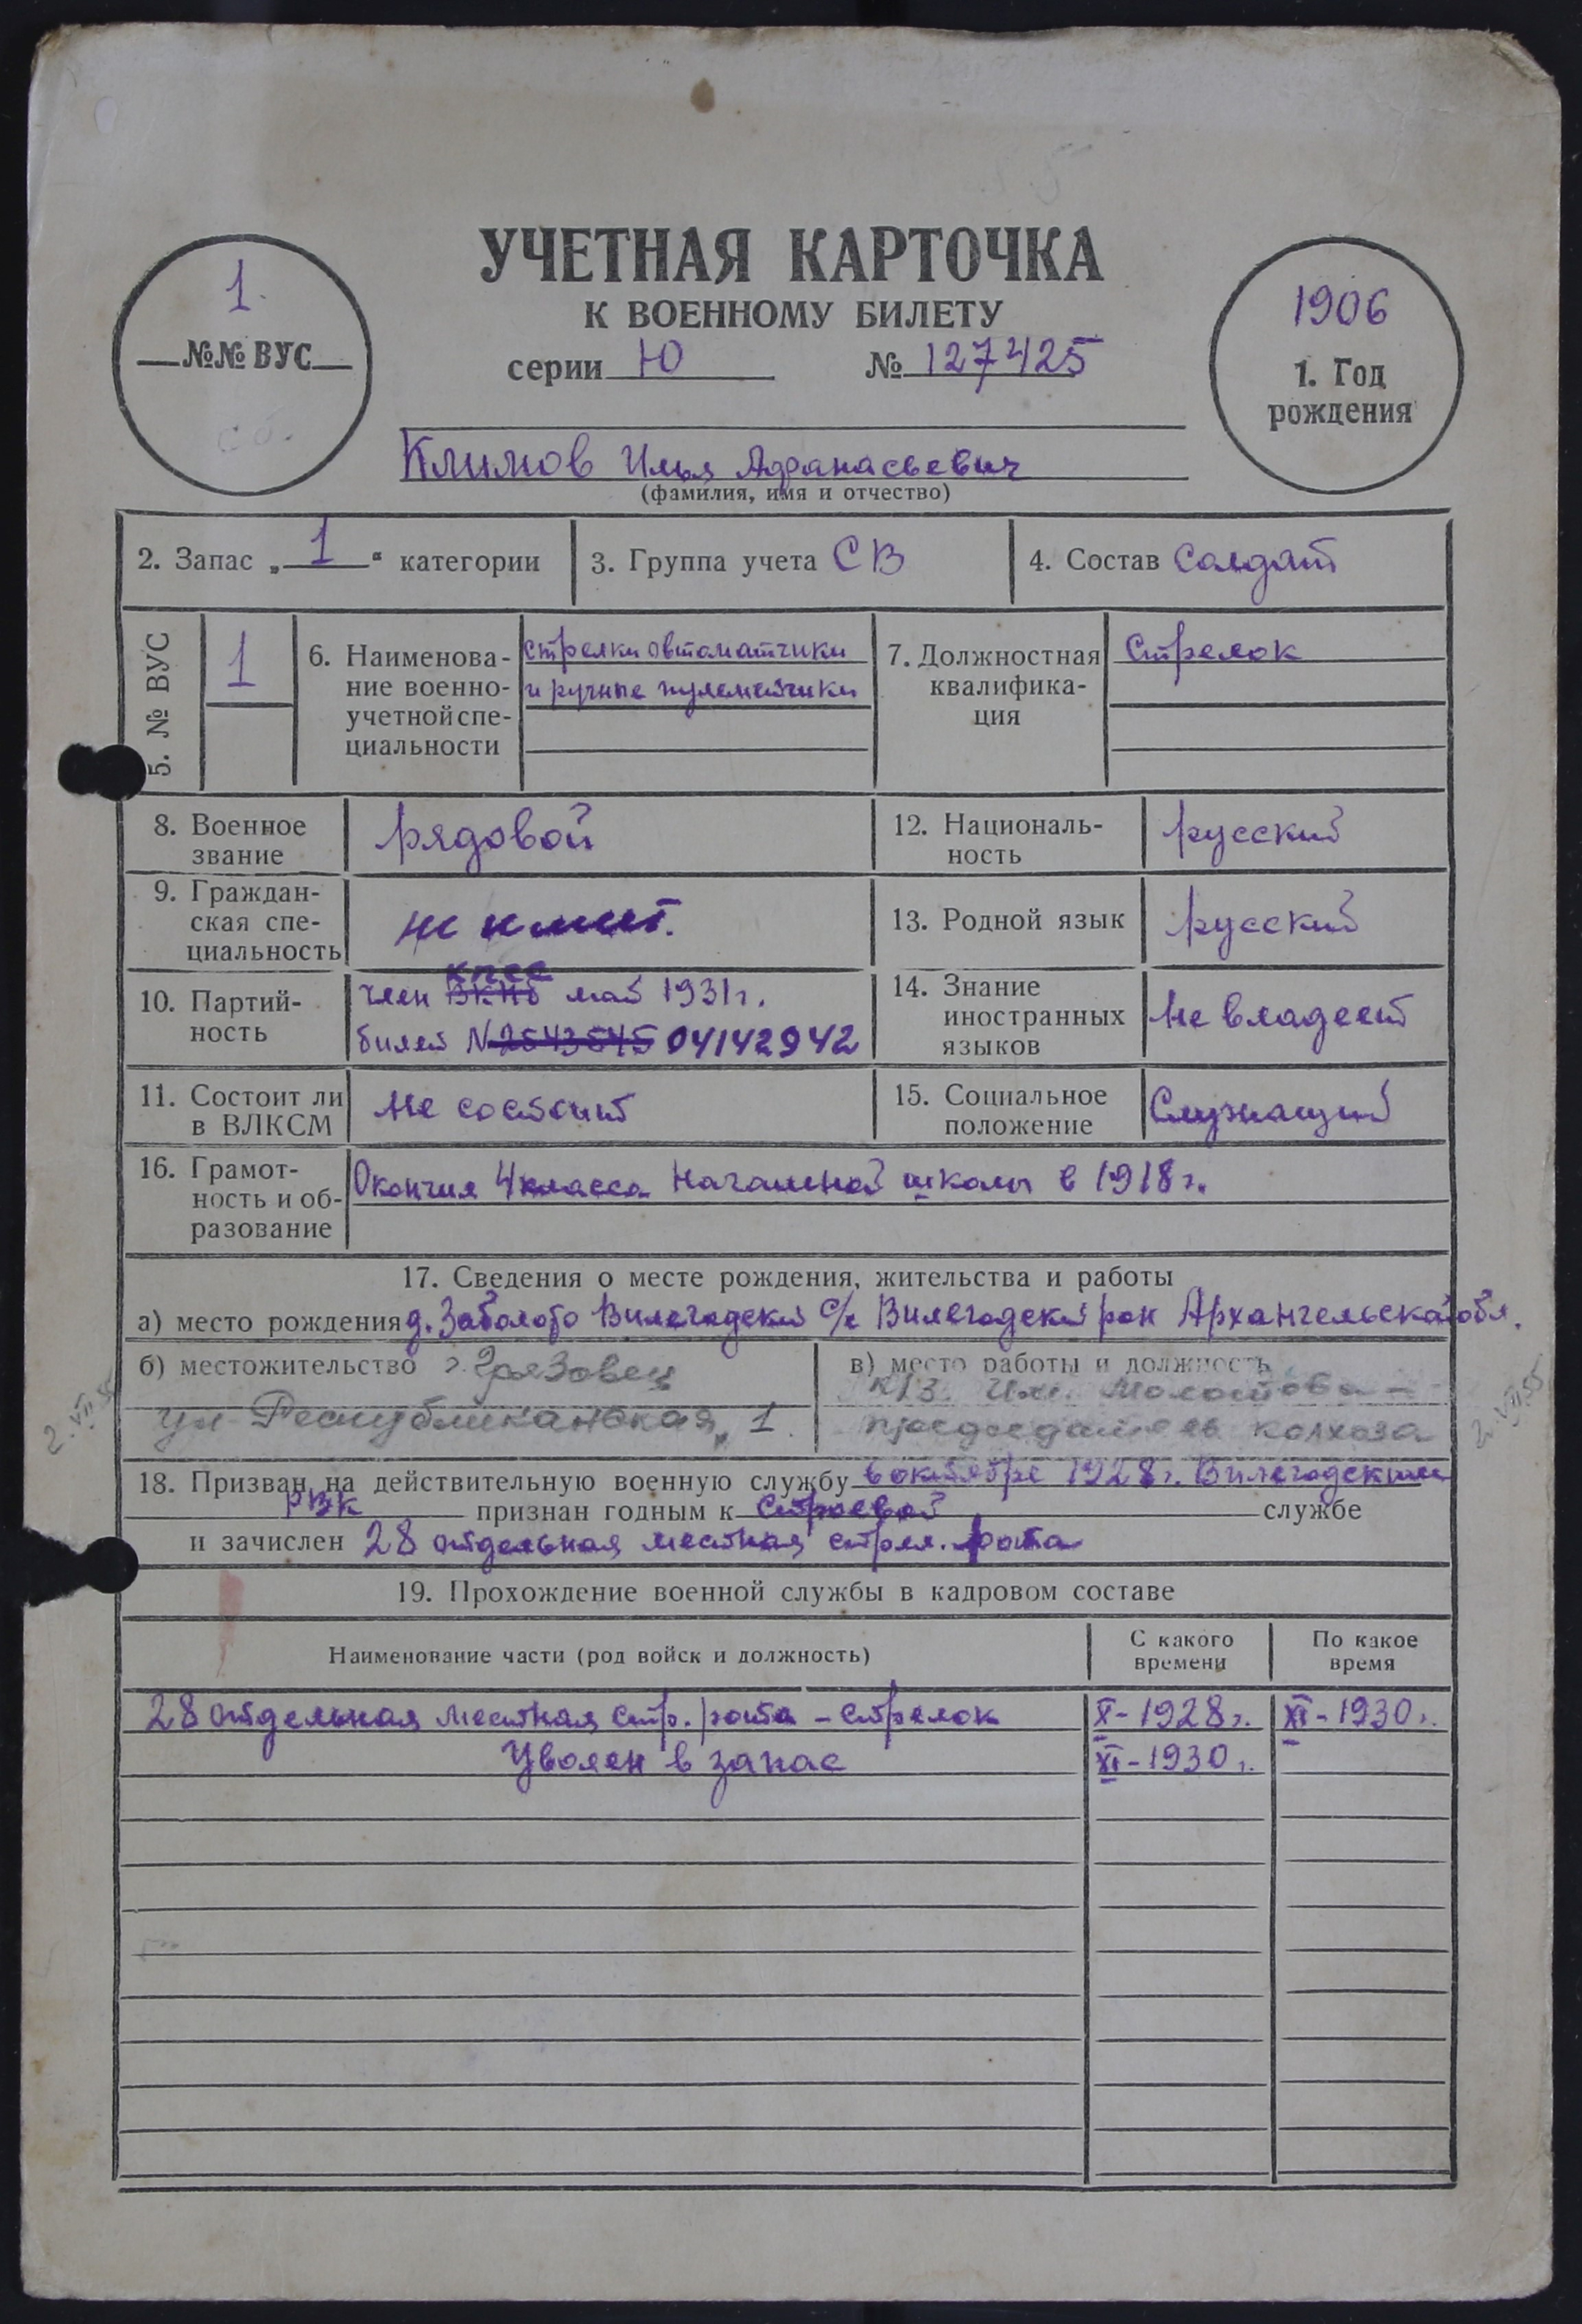 УЧЕТНАЯ КАРТОЧКА
К ВОЕННОМУ БИЛЕТУ
серии Ю № 127425
1
№№ ВУС
1906
1. Год
рождения
Климов Илья Афанасьевич
(фамилия, имя и отчество)
2. Запас „1“ категории
3. Группа учета СВ
4. Состав Солдат
5. № ВУС
1
6. Наименова-
ние военно-
учетной спе-
циальности
стрелки автоматчики
и ручные пулеметчики
7. Должностная
квалифика-
ция
Стрелок
8. Военное
звание
рядовой
12. Националь-
ность
русский
9. Граждан-
ская спе-
циальность
не имеет.
13. Родной язык
русский
10. Партий-
ность
КПСС
член ВКПб май 1931 г.
билет N 2543545 04142942
14. Знание
иностранных
языков
Не владеет
11. Состоит ли
в ВЛКСМ
Не состоит
15. Социальное
положение
Служащий
16. Грамот-
ность и об-
разование
Окончил 4 класса Начальной школы в 1918 г.
17. Сведения о месте рождения, жительства и работы
а) место рождения д. Заболото Вилегодский с/с Вилегодский рон Архангельской обл.
б) местожительство г. Грязовец
ул Республиканская, 1.
в) место работы и должность
к/з. Им. Молотова -
председатель колхоза
2.VII.55
2.VII.55
18. Призван на действительную военную службу в октябре 1928 г. Вилегодским
РВК признан годным к Строевой службе
и зачислен 28 отдельная местная стрел. рота
19. Прохождение военной службы в кадровом составе
Наименование части (род войск и должность)
С какого
времени
По какое
время
28 отдельная местная стр. рота - стрелок X-1928 г. XI-1930 г.
Уволен в запас XI-1930 г.